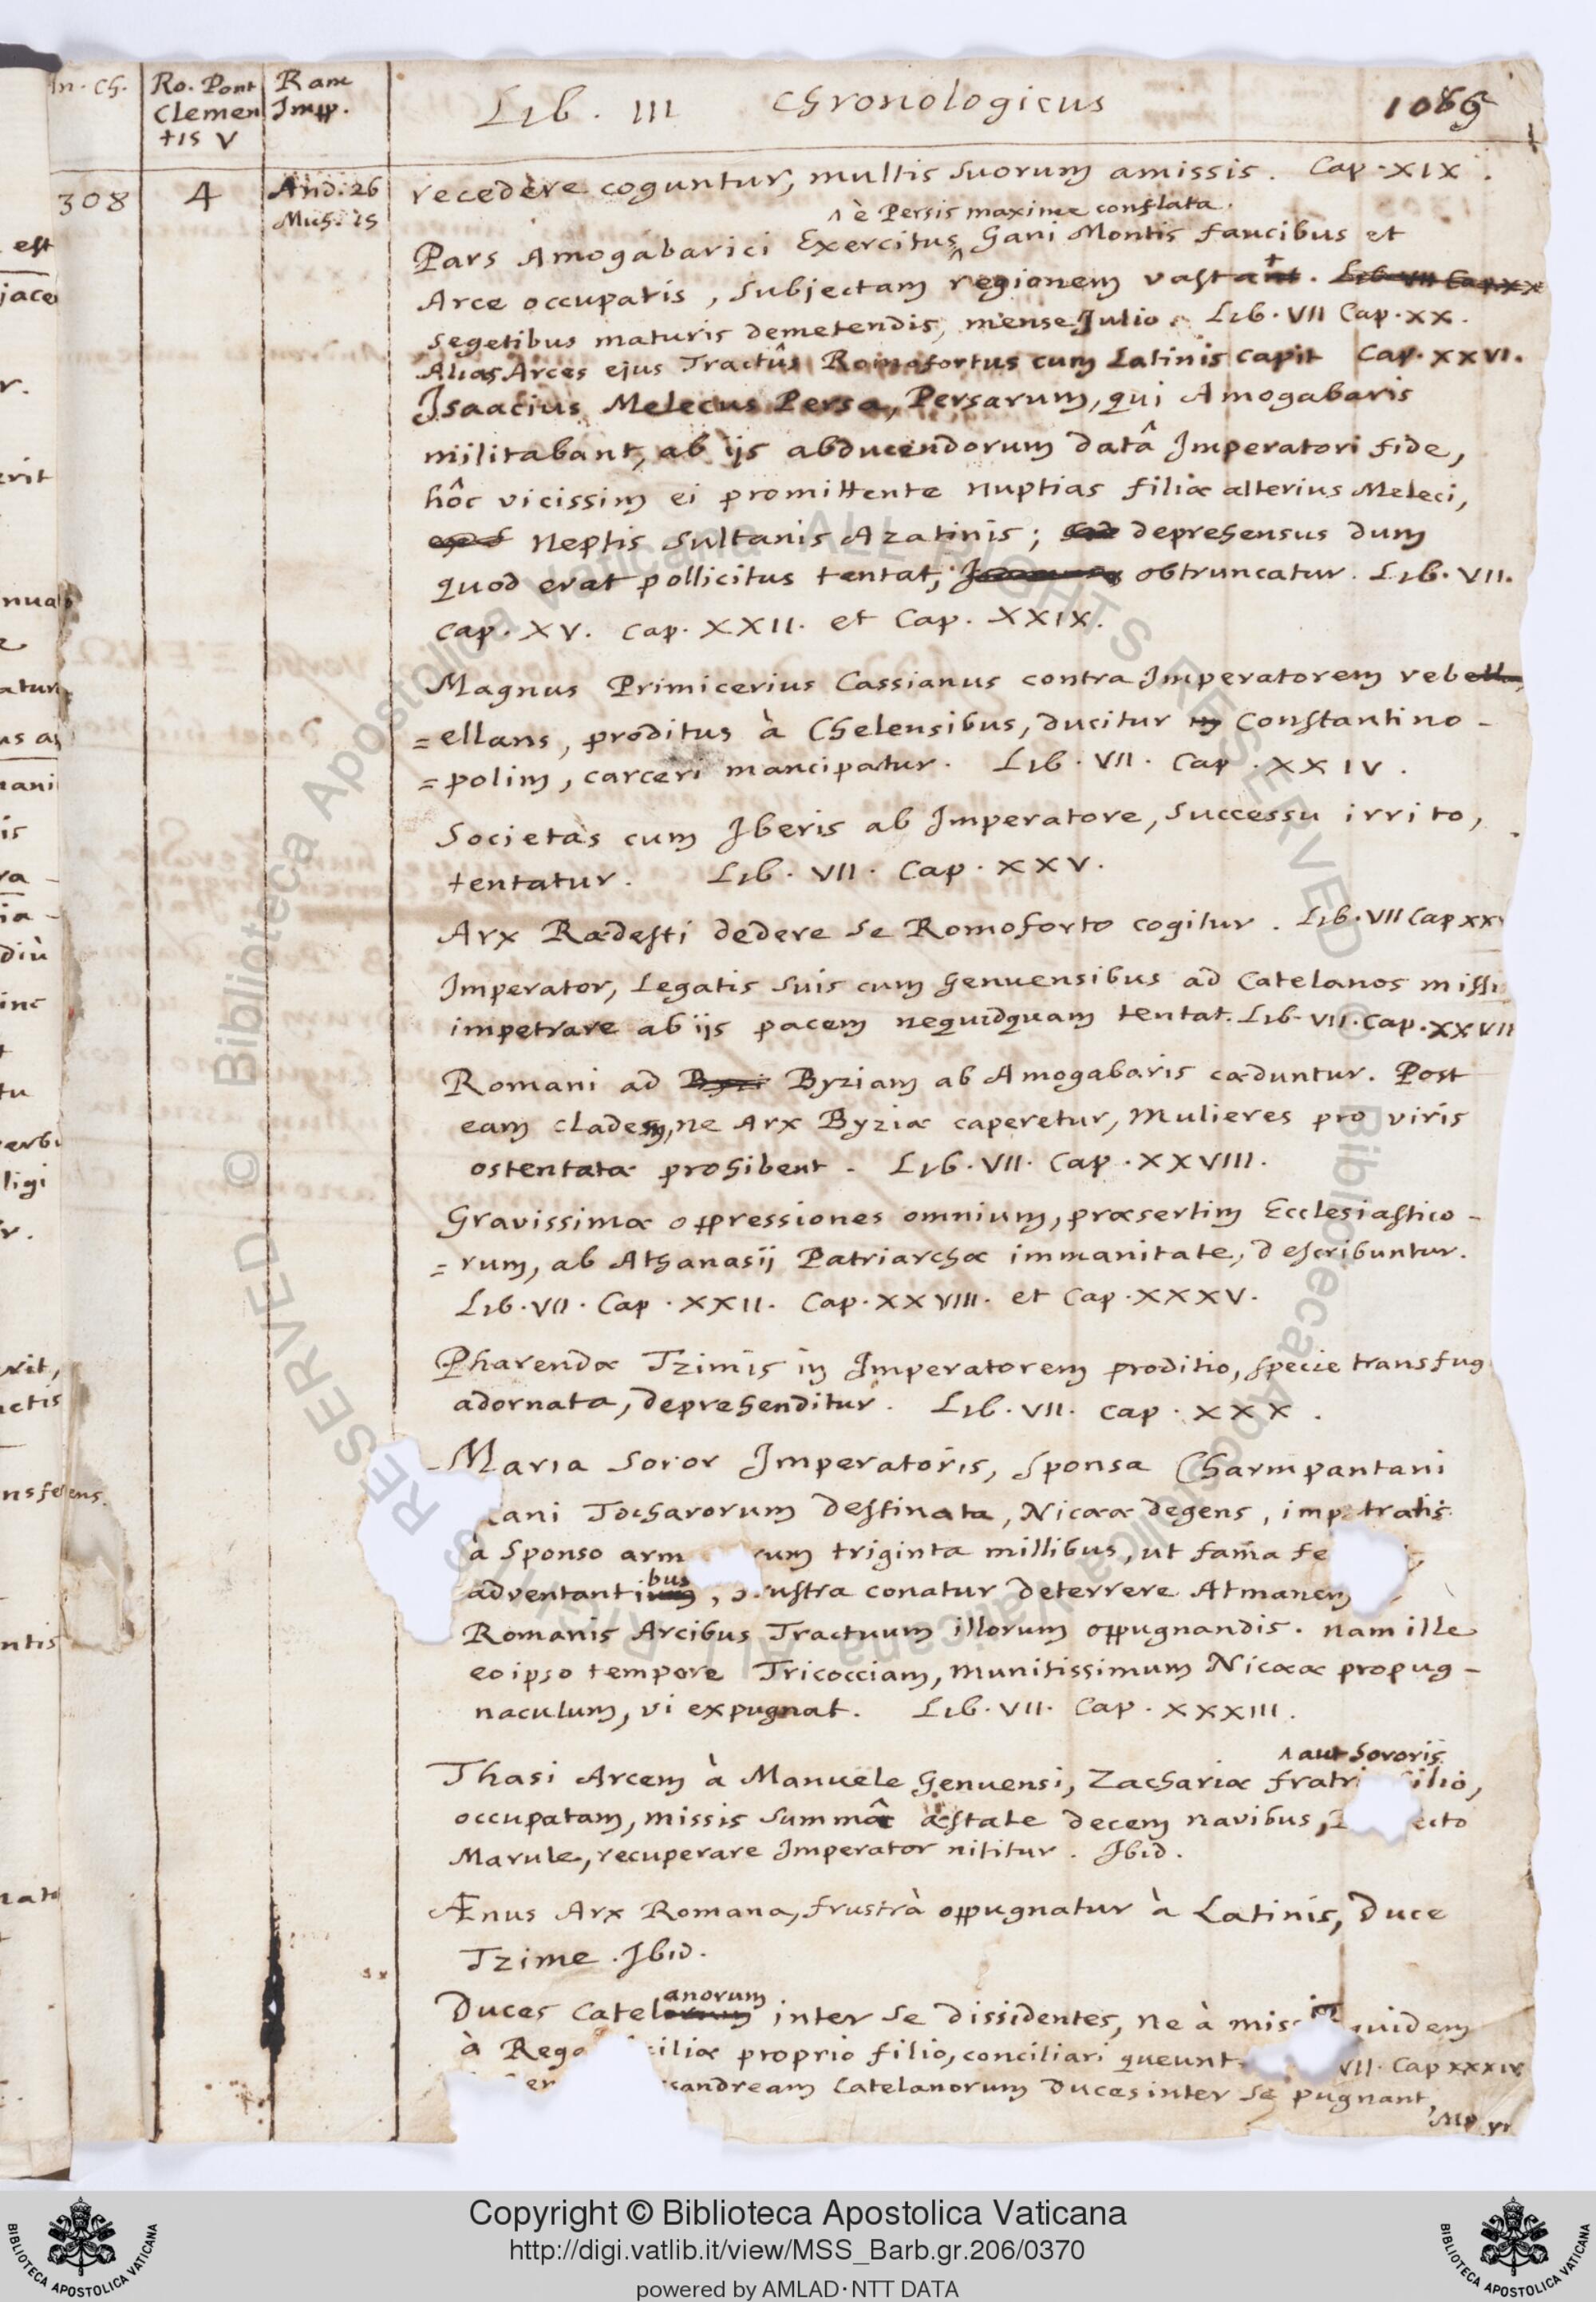 n. Ch.
Ro. Pont
Clemen
tis V
Rom
Impp.
Lib. III Chronologicus 1089
308 4 And: 26
Mich: 15
recedere coguntur, multis suorum amissis. Cap. XIX.
^ è Persis maxime conflata.
Pars Amogabarici Exercitus, Gani Montis faucibus et
Arce occupatis, subjectam regionem vastat. Lib. VII Cap. XX
segetibus maturis demetendis, mense Julio. Lib. VII Cap. XX.
Alias Arces ejus Tractûs Romofortus cum Latinis capit Cap. XXVI.
Isaacius Melecus Persa, Persarum, qui Amogabaris
militabant, ab ijs abducendorum datâ Imperatori fide,
hôc vicissim ei promittente nuptias filiæ alterius Meleci,
Neptis Sultanis Azatinis; sed deprehensus dum
quod erat pollicitus tentat, obtruncatur. Lib. VII.
Cap. XV. Cap. XXII. et Cap. XXIX.
Magnus Primicerius Cassianus contra Imperatorem reb
=ellans, proditus à Chelensibus, ducitur Constantino-
=polim, carceri mancipatur. Lib. VII. Cap. XXIV.
Societas cum Iberis ab Imperatore, successu irrito,
tentatur. Lib. VII. Cap. XXV.
Arx Rædesti dedere se Romoforto cogitur. Lib. VII Cap XXV
Imperator, Legatis suis cum Genuensibus ad Catelanos missi
impetrare ab ijs pacem nequidquam tentat. Lib. VII. Cap. XXVII
Romani ad Byzi Byziam ab Amogabaris cæduntur. Post
eam cladem, ne Arx Byziæ caperetur, Mulieres pro viris
ostentatæ prohibent. Lib. VII. Cap. XXVIII.
Gravissimæ oppressiones omnium, præsertim Ecclesiastico-
=rum, ab Athanasij Patriarchæ immanitate, describuntur.
Lib. VII. Cap. XXII. Cap. XXVIII. et Cap. XXXV.
Pharendæ Tzimis in Imperatorem proditio, specie transfug
adornata, deprehenditur. Lib. VII. Cap. XXX.
Maria Soror Imperatoris, Sponsa Charmpantani
cani Tocharorum destinata, Nicææ degens, imp tratis
à Sponso arm rum triginta millibus, ut fama fe
bus
adventanti , frustra conatur deterrere Atmanem
Romanis Arcibus Tractuum illorum oppugnandis. nam ille
eo ipso tempore Tricocciam, munitissimum Nicææ propug-
naculum, vi expugnat. Lib. VII. Cap. XXXIII.
^ aut Sororis
Thasi Arcem à Manuele Genuensi, Zachariæ fratri filio,
occupatam, missis summâ æstate decem navibus, ecto
Marule, recuperare Imperator nititur. Ibid.
Ænus Arx Romana, frustrà oppugnatur à Latinis, Duce
Tzime. Ibid.
anorum
Duces Catelorum inter se dissidentes, ne à miss quidem
à Rege iciliæ proprio filio, conciliari queunt. VII. Cap XXXIV
sandream Catelanorum Duces inter se pugnant,
est
jace
r.
erit
nua
atur
as a
mani
is
ra-
ia-
diù
inc
tu
verbi
ligi
r.
rit,
ctis
nsferens.
ntis
© Biblioteca Apostolica Vaticana ALL RIGHTS RESERVED © Biblioteca Apostolica Vaticana ALL RIGHTS RESERVED
Copyright © Biblioteca Apostolica Vaticana
http://digi.vatlib.it/view/MSS_Barb.gr.206/0370
powered by AMLAD·NTT DATA
BIBLIOTECA APOSTOLICA VATICANA
BIBLIOTECA APOSTOLICA VATICANA